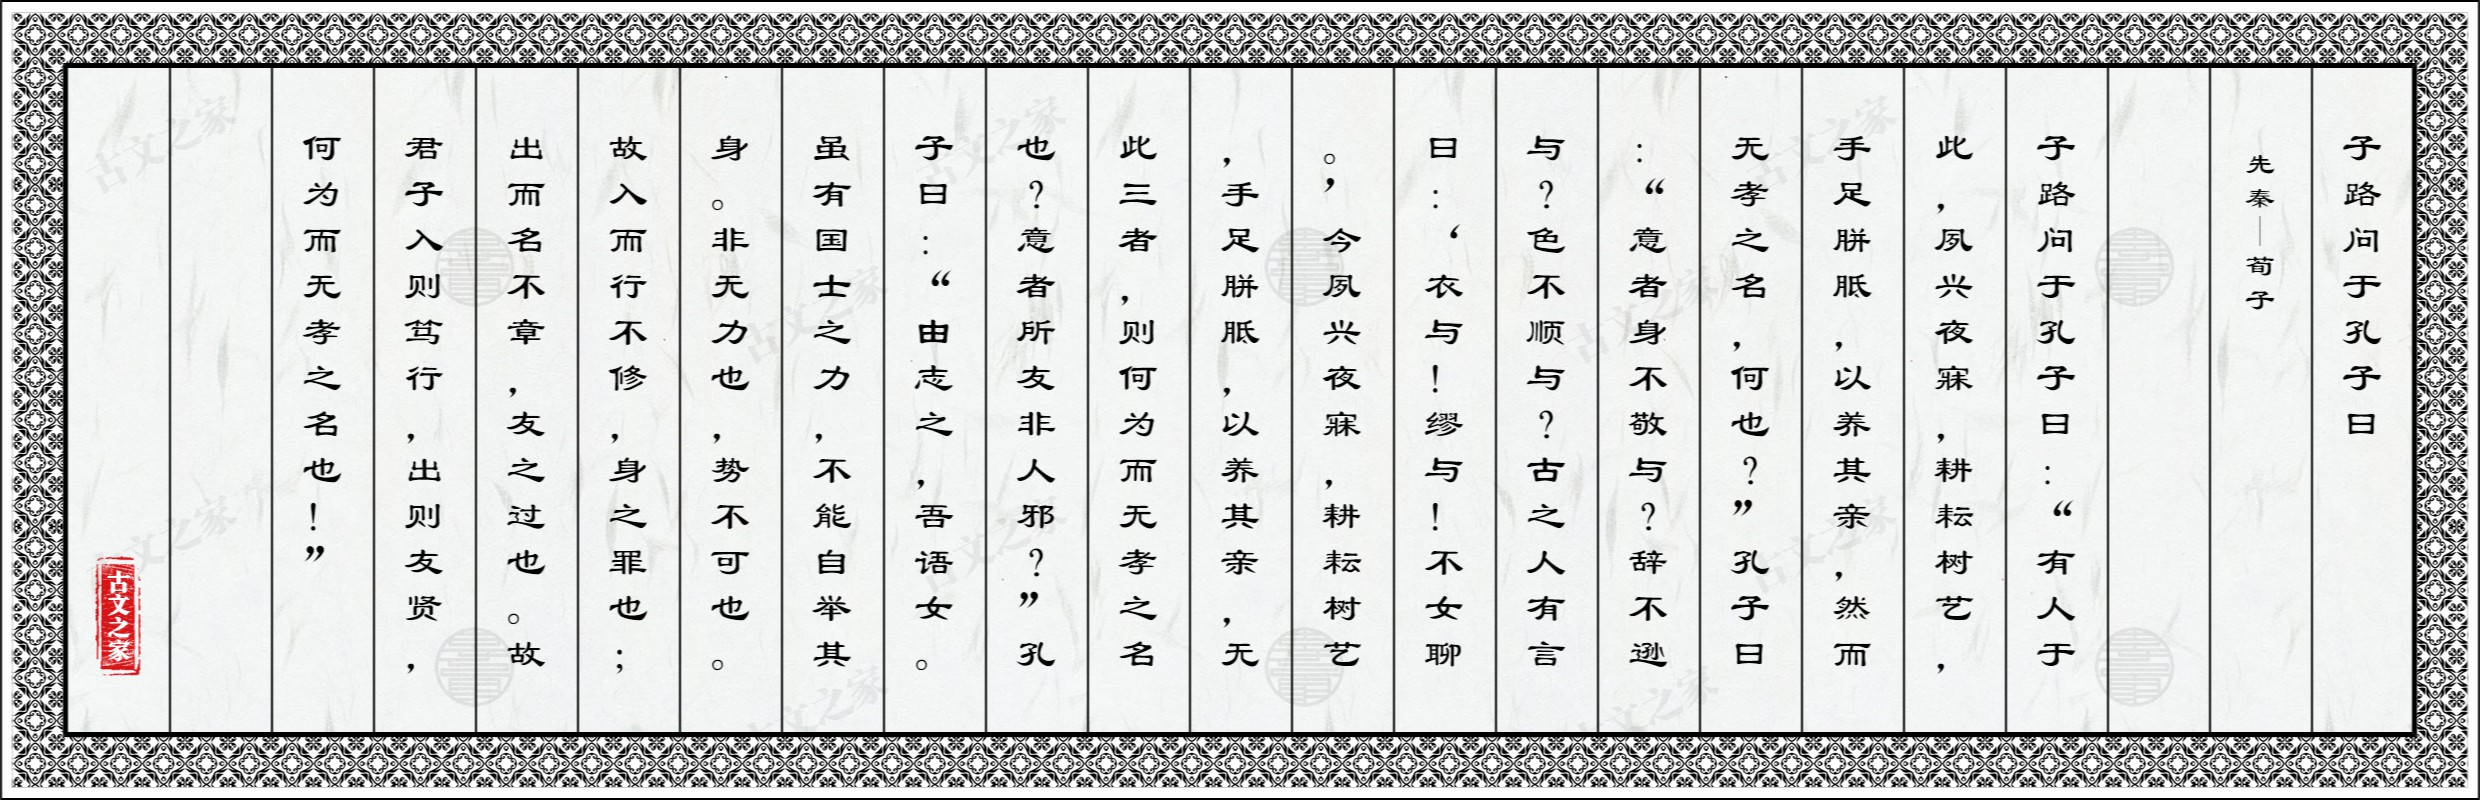 子路问于孔子曰
先秦—荀子
子路问于孔子曰：“有人于
此，夙兴夜寐，耕耘树艺，
手足胼胝，以养其亲，然而
无孝之名，何也？”孔子曰
：“意者身不敬与？辞不逊
与？色不顺与？古之人有言
曰：‘衣与！缪与！不女聊
。’今夙兴夜寐，耕耘树艺
，手足胼胝，以养其亲，无
此三者，则何为而无孝之名
也？意者所友非人邪？”孔
子曰：“由志之，吾语女。
虽有国士之力，不能自举其
身。非无力也，势不可也。
故入而行不修，身之罪也；
出而名不章，友之过也。故
君子入则笃行，出则友贤，
何为而无孝之名也！”
古文之家